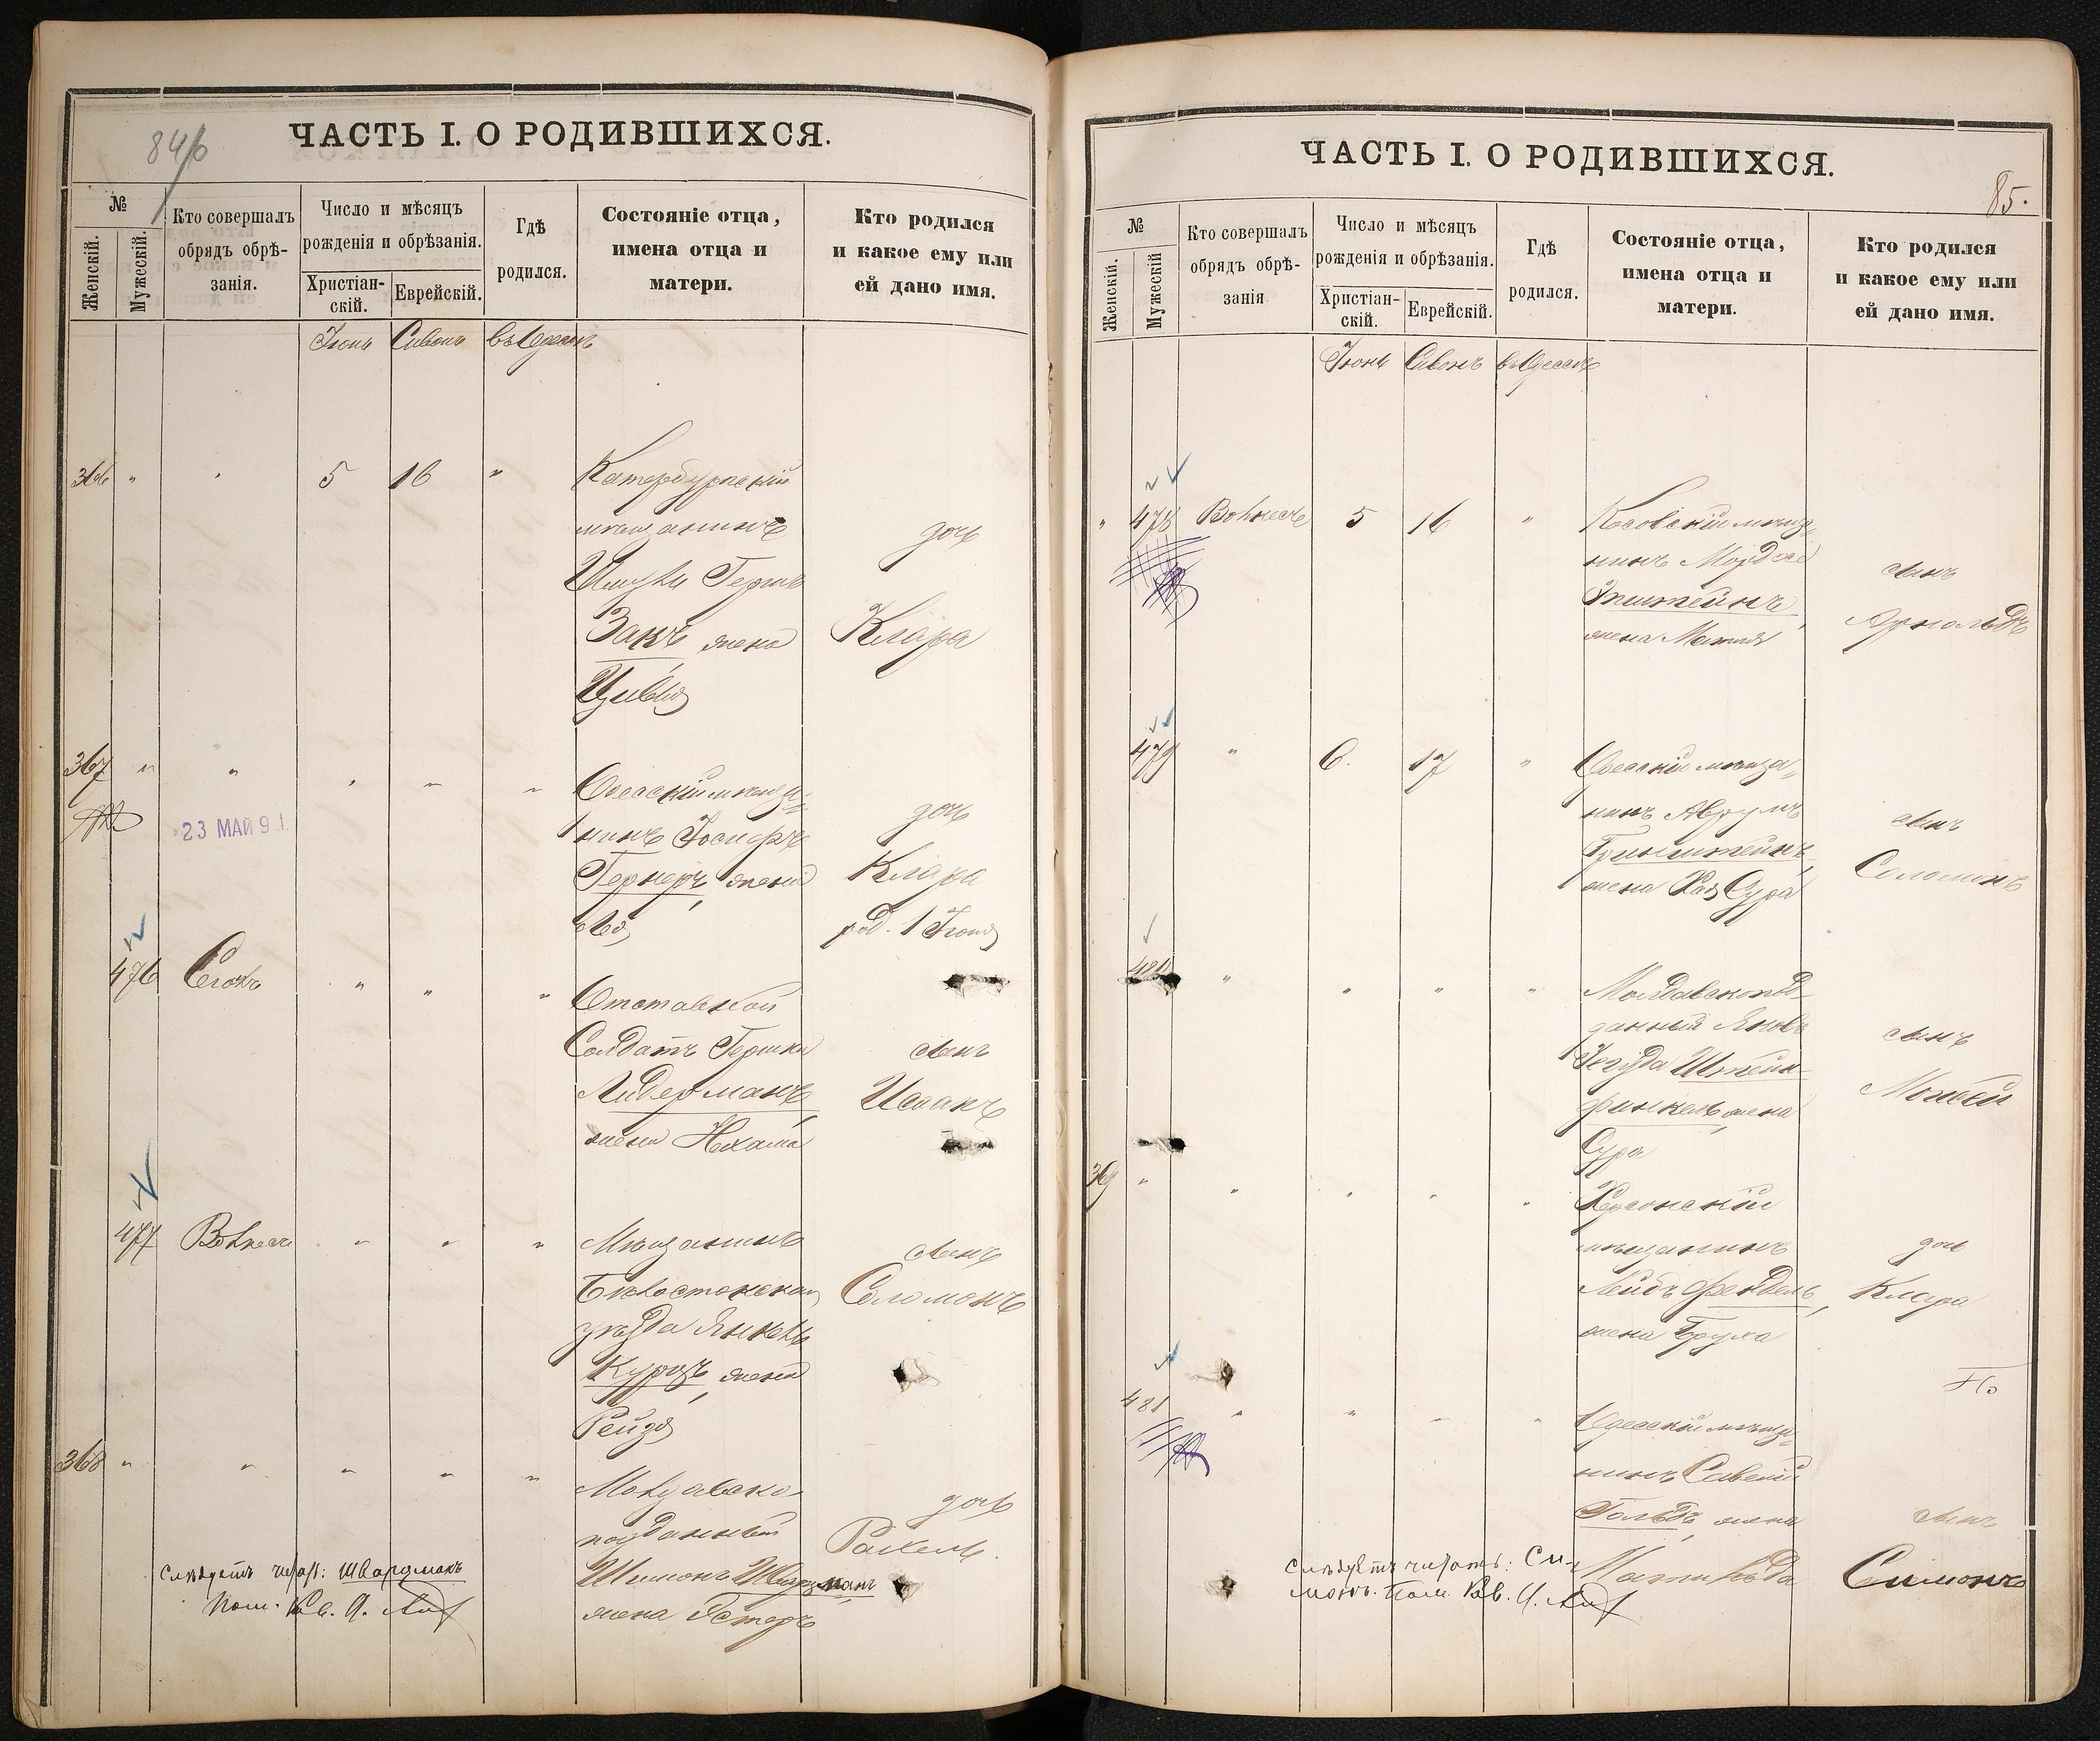 84/б
ЧАСТЬ I. О РОДИВШИХСЯ.
№
Женскій.
Мужескій.
Кто совершалъ
обрядъ обрѣ-
занія.
Число и мѣсяцъ
рожденія и обрѣзанія.
Христіан-
скій.
Еврейскій.
Гдѣ
родился.
Состояніе отца,
имена отца и
матери.
Кто родился
и какое ему или
ей дано имя.
Іюнь Сивонъ въ Одессѣ
366 " " 5 16 "
мѣщанинъ
Гершъ
Закъ жена
Цивья
дочь
Клара
367 " " " " "
23 МАЙ 91.
Одесскій мѣща-
нинъ Іосифъ
Гернеръ, жена
дочь
Клара
род. 1 Іюня
476 " " "
Отставной
Солдатъ Гершко
Лидерманъ,
жена Нехама
сынъ
Исаакъ
477 " " "
Мѣщанинъ
Бѣлостокскаго
уѣзда Янкель
жена
Рейзя
сынъ
Соломонъ
368 " " " " "
Молдавско-
подданный
Шимонъ Шварцманъ
жена Эстеръ
дочь
Рахель.
слѣдуетъ читать: Шварцманъ
Пом. Рав.
85.
ЧАСТЬ I. О РОДИВШИХСЯ.
№
Женскій.
Мужескій
Кто совершалъ
обрядъ обрѣ-
занія
Число и мѣсяцъ
рожденія и обрѣзанія.
Христіан-
скій.
Еврейскій.
Гдѣ
родился.
Состояніе отца,
имена отца и
матери.
Кто родился
и какое ему или
ей дано имя.
Іюнь Сивонъ въ Одессѣ
" 478 5 16 "
мѣща-
нинъ Мордхе
Эпштейнъ,
жена
сынъ
Арнольдъ
479 " 6. 17 "
Одесскій мѣща-
нинъ Аврумъ
Гринштейнъ,
жена Хая Сура
сынъ
Соломонъ
" " " "
Молдавскопод-
данный Янкель
Іегуда Штейн-
финкель, жена
Сура
сынъ
Мойсей
369 " " " " "
Херсонскій
мѣщанинъ
Лейбъ Фендель,
жена Бруха
дочь
Клара
481 " " " "
Одесскій мѣща-
нинъ Савелій
Гольдъ, жена
Матильда
сынъ
Симонъ
слѣдуетъ читать: Си-
монъ. Пом. Рав.